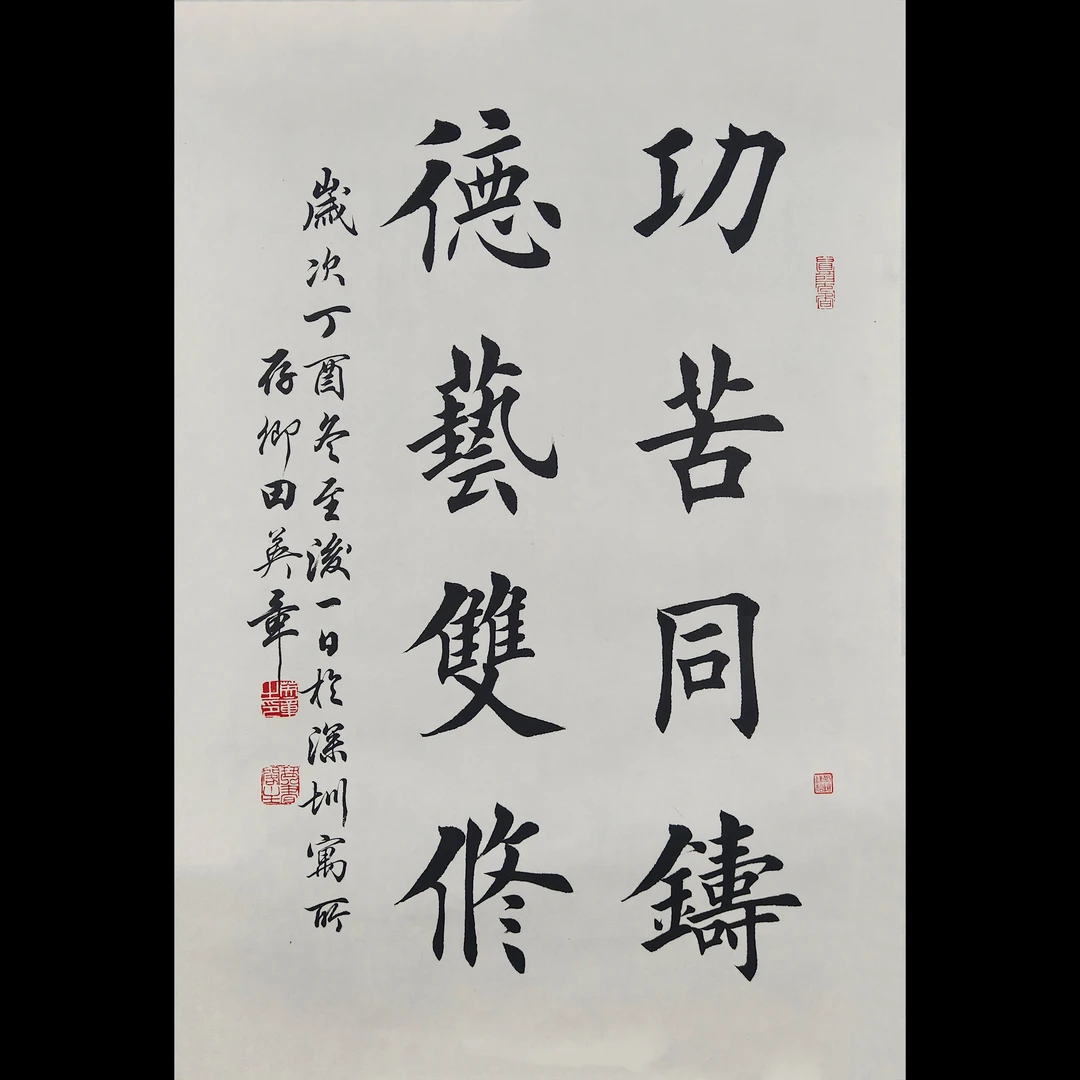 功苦同鑄
德藝雙修
歲次丁酉冬至後一日於深圳寓所
存卿田英章
英章之印